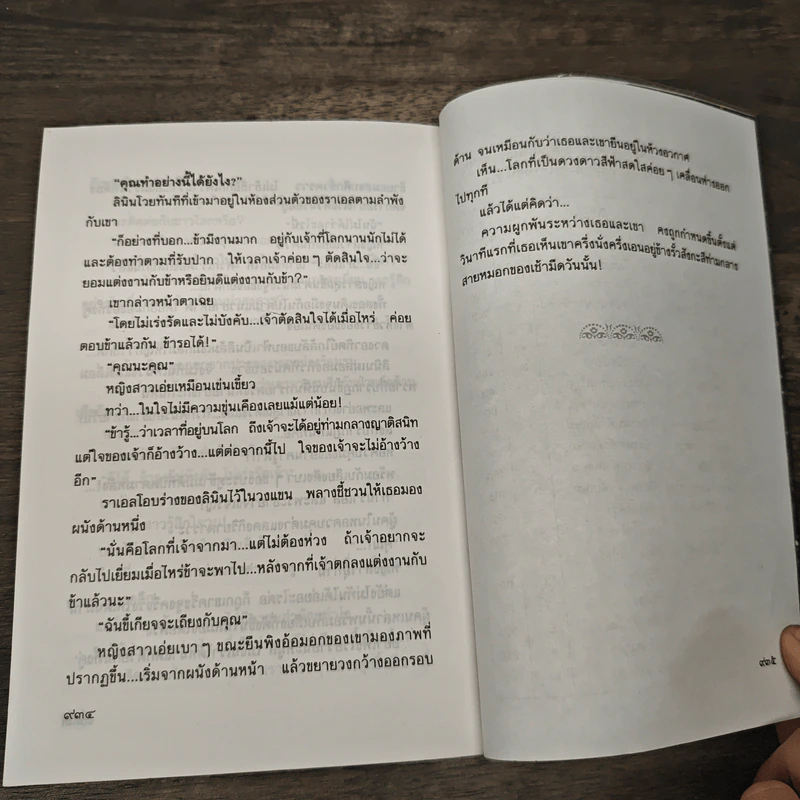 "คุณทำอย่างนี้ได้ยังไง?"
ลินินโวยทันทีที่เข้ามาอยู่ในห้องส่วนตัวของราเอลตามลำพัง
กับเขา
"ก็อย่างที่บอก...ข้ามีงานมาก อยู่กับเจ้าที่โลกนานนักไม่ได้
และต้องทำตามที่รับปาก ให้เวลาเจ้าค่อยๆ ตัดสินใจ...ว่าจะ
ยอมแต่งงานกับข้าหรือยินดีแต่งงานกับข้า?"
เขากล่าวหน้าตาเฉย
"โดยไม่เร่งรัดและไม่บังคับ...เจ้าตัดสินใจได้เมื่อไหร่ ค่อย
ตอบข้าแล้วกัน ข้ารอได้!"
"คุณนะคุณ"
หญิงสาวเอ่ยเหมือนเข่นเขี้ยว
ทว่า...ในใจไม่มีความขุ่นเคืองเลยแม้แต่น้อย!
"ข้ารู้...ว่าเวลาที่อยู่บนโลก ถึงเจ้าจะได้อยู่ท่ามกลางญาติสนิท
แต่ใจของเจ้าก็อ้างว้าง...แต่ต่อจากนี้ไป ใจของเจ้าจะไม่อ้างว้าง
อีก"
ราเอลโอบร่างของลินินไว้ในวงแขน พลางชี้ชวนให้เธอมอง
ผนังด้านหนึ่ง
"นั่นคือโลกที่เจ้าจากมา...แต่ไม่ต้องห่วง ถ้าเจ้าอยากจะ
กลับไปเยี่ยมเมื่อไหร่ข้าจะพาไป...หลังจากที่เจ้าตกลงแต่งงานกับ
ข้าแล้วนะ"
"ฉันขี้เกียจจะเถียงกับคุณ"
หญิงสาวเอ่ยเบาๆ ขณะยืนพิงอ้อมอกของเขามองภาพที่
ปรากฏขึ้น...เริ่มจากผนังด้านหน้า แล้วขยายวงกว้างออกรอบ
๙๓๔
ด้าน จนเหมือนกับว่าเธอและเขายืนอยู่ในห้วงอวกาศ
เห็น...โลกที่เป็นดวงดาวสีฟ้าสดใสค่อยๆ เคลื่อนห่างออก
ไปทุกที
แล้วได้แต่คิดว่า...
ความผูกพันระหว่างเธอและเขา คงถูกกำหนดขึ้นตั้งแต่
วินาทีแรกที่เธอเห็นเขาครึ่งนั่งครึ่งเอนอยู่ข้างรั้วสังกะสีท่ามกลาง
สายหมอกของเช้ามืดวันนั้น!
๙๓๕